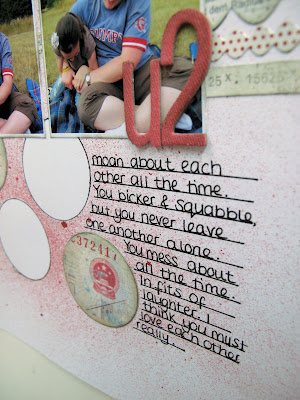 u2
25x. 15625
moan about each
other all the time.
You bicker & squabble,
but you never leave
one another alone.
You mess about
all the time.
In fits of
laughter. I
think you must
love each other
really.
372411